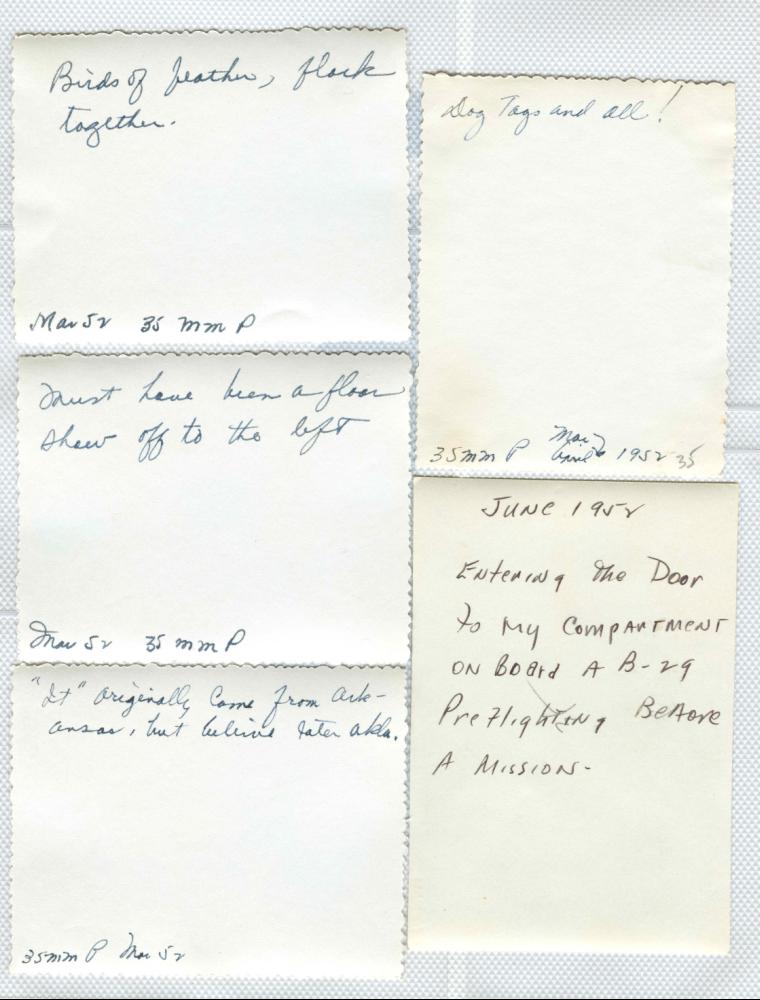 Birds of feather, flock
together.
Mar 52 35 mm P
Must have been a floor
show off to the left
Mar 52 35 mm P
"It" originally came from Ark-
ansas, but believe later okla.
35mm P Mar 52
Dog Tags and all!
Mar
35mm P April 1952 35
JUNE 1952
Entering the Door
To My COMPARTMENT
ON BOard A B-29
Preflighting Before
A MISSION-